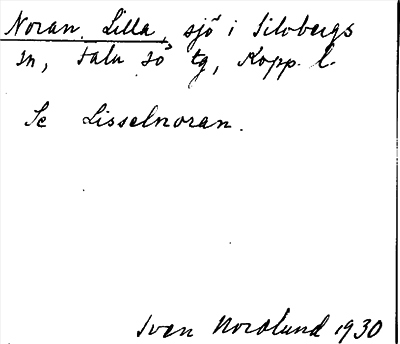 Noran, Lilla, sjö i Silvbergs
sn, Falu sö tg, Kopp. l.
Se Lisselnoran.
Sven Nordlund 1930